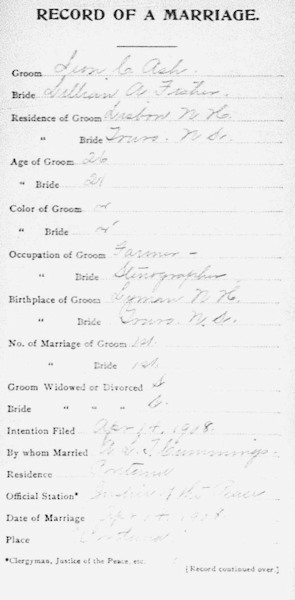 RECORD OF A MARRIAGE.
Groom Leon C. Ash
Bride Lillian A Fisher.
Residence of Groom Lisbon N. H.
" Bride N. S.
Age of Groom 26
" Bride 24
Color of Groom w
" Bride w
Occupation of Groom Farmer -
" Bride Stenographer
Birthplace of Groom Lyman N. H.
" Bride N. S.
No. of Marriage of Groom 1st
" Bride 1st
Groom Widowed or Divorced S
Bride " "
Intention Filed Apr 1908
By whom Married Cummings
Residence
Official Station* Justice of the Peace
Date of Marriage Apr 1908
Place
*Clergyman, Justice of the Peace, etc.
[Record continued over.]